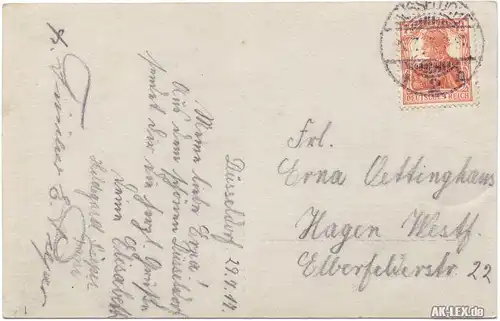 Düsseldorf 29.7.17.
Meine liebe Erna!
Aus dem schönen Düsseldorf
sendet dir die herzl. Grüße
deine Elisabeth
Hildegard
Frl.
Erna Oettinghaus
Hagen Westf.
Elberfelderstr. 22
DÜSSELDORF
DEUTSCHES REICH
AK-LEX.de